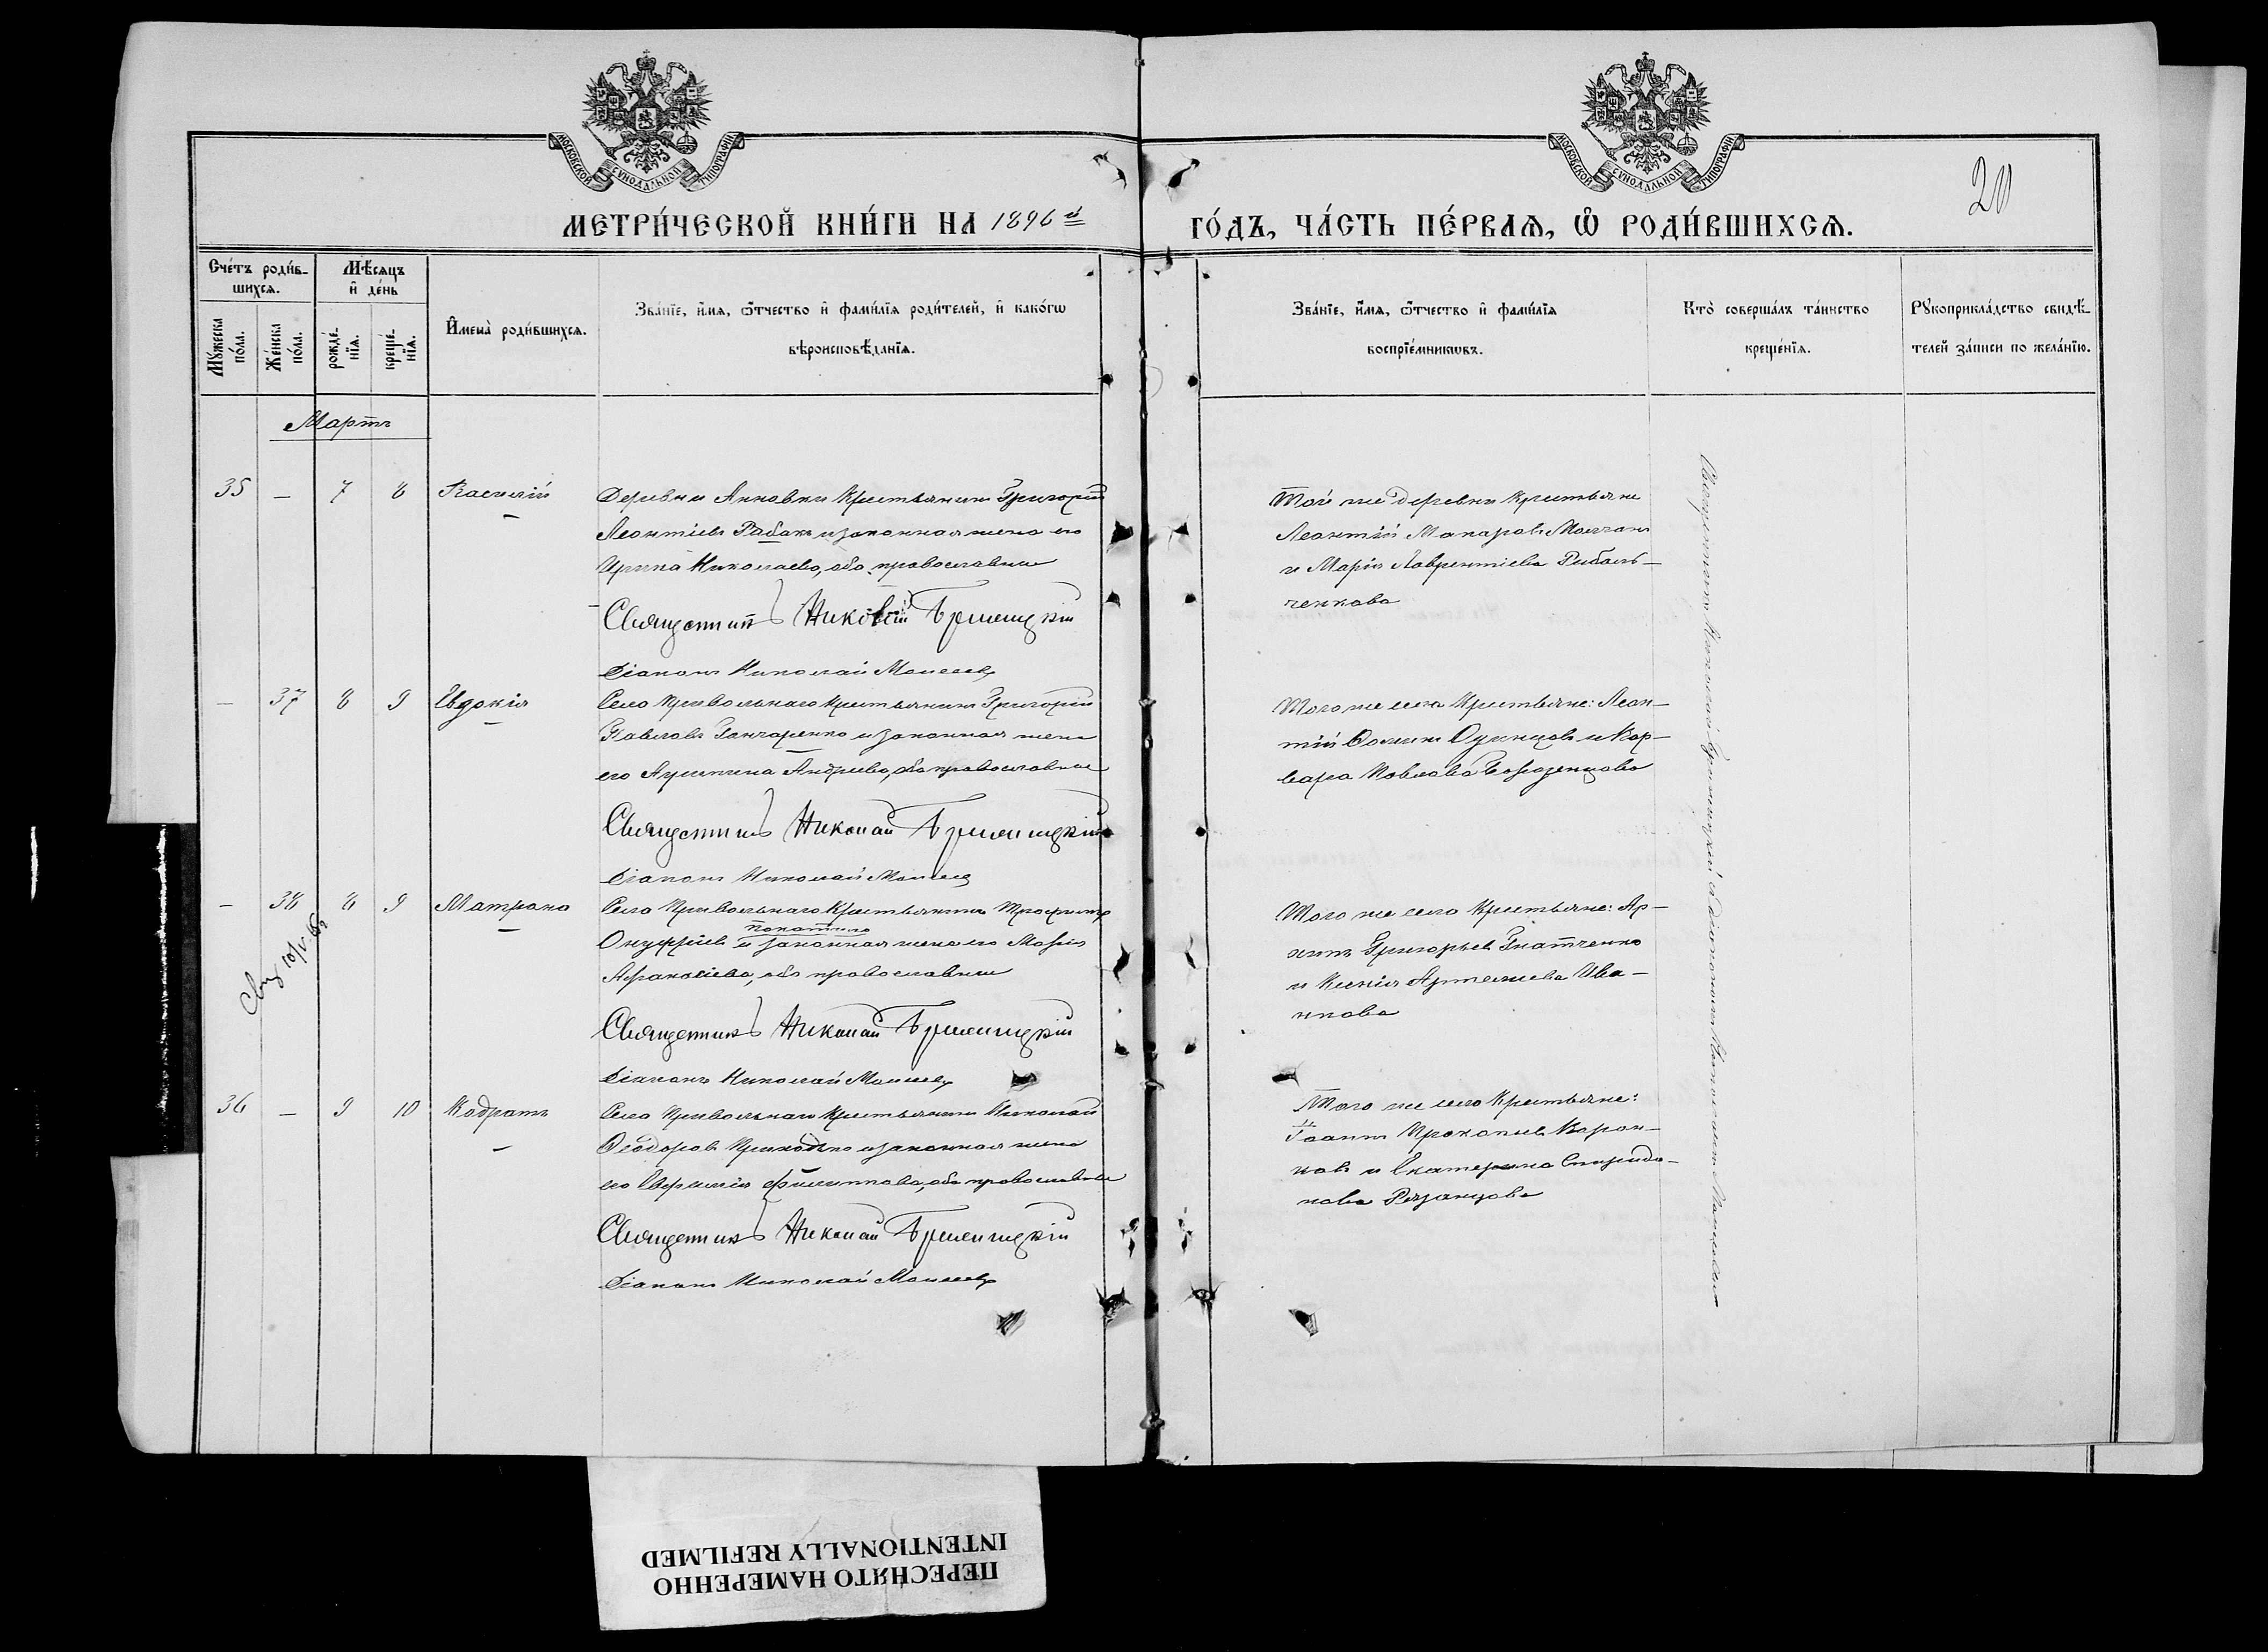 МОСКОВСКОЙ СѴНОДАЛЬНОЙ ТИПОГРАФІИ
МОСКОВСКОЙ СѴНОДАЛЬНОЙ ТИПОГРАФІИ
20
МЕТРИ́ЧЕСКОЙ КНИ́ГИ НА 1896й ГО́ДЪ, ЧА́СТЬ ПЕ́РВАѦ, Ѽ РОДИ́ВШИХСѦ.
Сче́тъ роди́в-
шихсѧ.
Мꙋ́жеска по́ла.
Же́нска по́ла.
Мѣ́сѧцъ
и҆ де́нь
рожде́-
нїѧ.
креще́-
нїѧ.
И҆мена̀ роди́вшихсѧ.
Зва́нїе, и҆́мѧ, ѻ҆́тчество и҆ фамі́лїѧ роди́телей, и҆ како́гѡ
вѣроисповѣ́данїѧ.
Зва́нїе, и҆́мѧ, ѻ҆́тчество и҆ фамі́лїѧ
воспрїе́мникѡвъ.
Кто̀ соверша́лъ та́инство
креще́нїѧ.
Рꙋкоприкла́дство свидѣ́-
телей за́писи по жела́нїю.
Мартъ
35 — 7 8 Василій
Деревни Анновки крестьянинъ Григорій
Леонтіевъ Рабакъ и законная жена его
Ирина Николаева, оба православные
Священникъ Николай
Діаконъ Николай Моисеевъ
Той же деревни крестьяне
Леонтій Макаровъ Молчанъ
и Марія Лаврентіева Рибаль-
ченкова
— 37 8 9 Евдокія
Села Привольнаго крестьянинъ Григорій
Павловъ Гончаренко и законная жена
его Андреева, оба православные
Священникъ Николай
Діаконъ Николай Моисеевъ
Того же села крестьяне: Леон-
тій Одинцовъ и Вар-
вара Павлова
— 38 8 9 Матрона
Села Привольнаго крестьянинъ Трофимъ
Покотило
Онуфріевъ и законная жена его Марія
Афанасіева, оба православные
Священникъ Николай
Діаконъ Николай Моисеевъ
Того же села крестьяне: Ар-
хипъ Григорьевъ Гнатченко
и Ксенія Артемиева Ива-
нкова
36 — 9 10 Кодратъ
Села Привольнаго крестьянинъ Николай
Ѳеодоровъ Приходько и законная жена
его Евфимія Филиппова, оба православные
Священникъ Николай
Діаконъ Николай Моисеевъ
Того же села крестьяне:
Іоаннъ Прокопіевъ Ворон-
ковъ и Екатерина Спиридо-
нова Рязанцова
ПЕРЕСНЯТО НАМЕРЕННО
INTENTIONALLY REFILMED